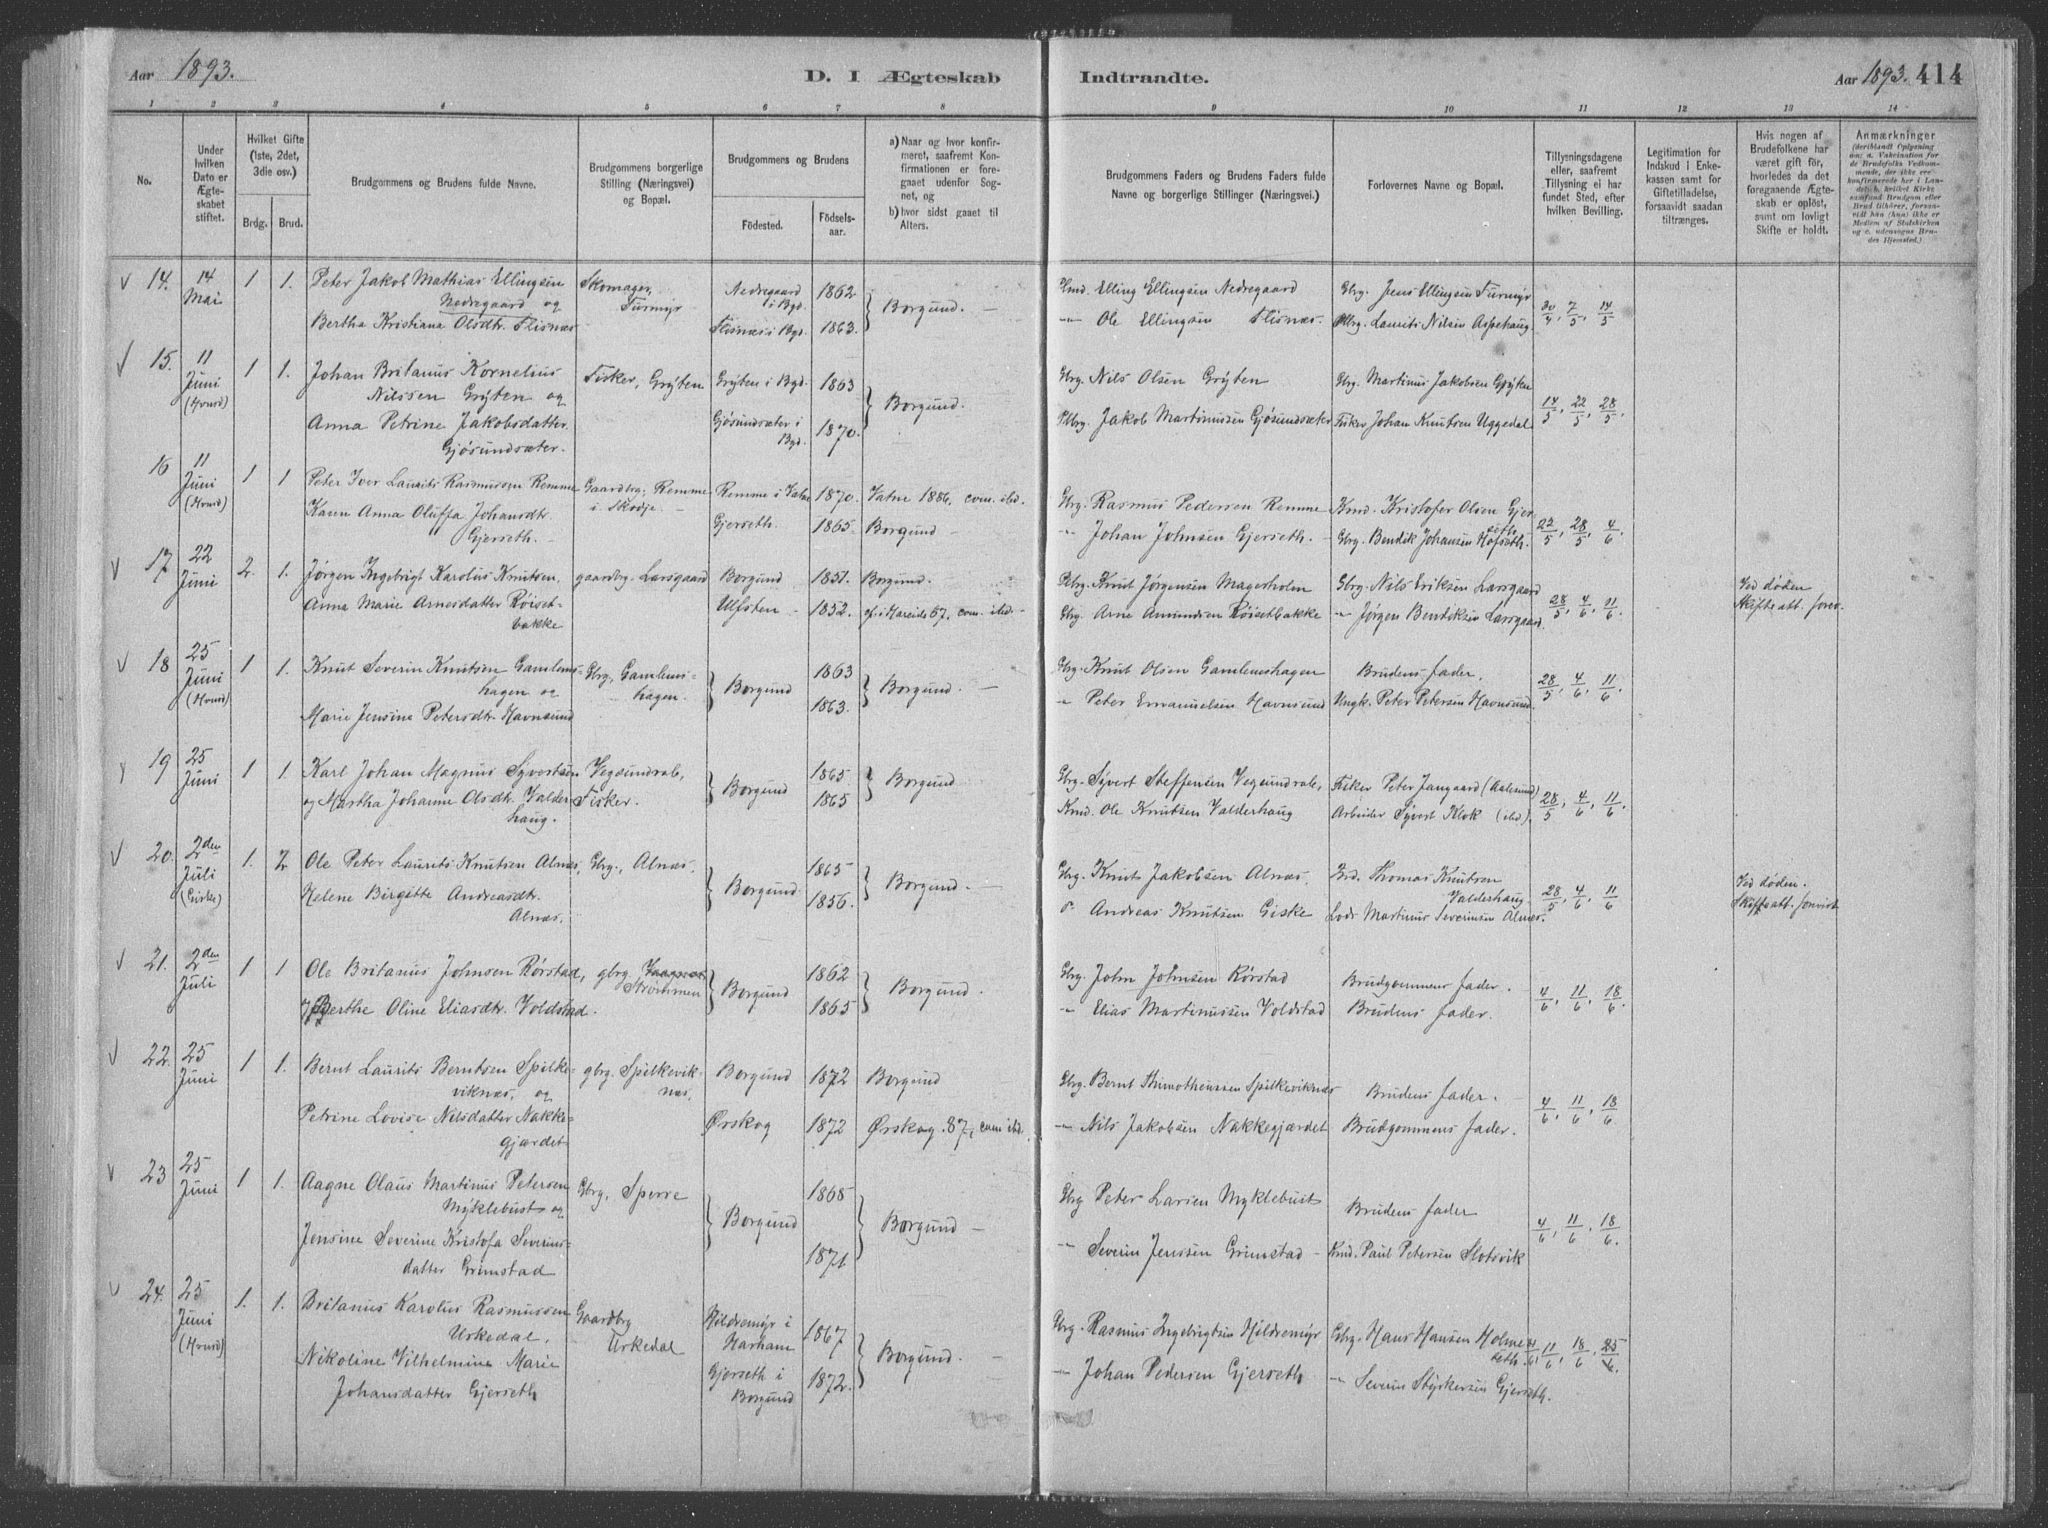 Aar 1893. D. I Ægteskab Indtraadte. Aar 1893. 414
1 2 3 4 5 6 7 8 9 10 11 12 13 14
No.
Under hvilken Dato er Ægteskabet stiftet.
Hvilket Gifte (1ste, 2det, 3die osv.)
Brdg. Brud.
Brudgommens og Brudens fulde Navne.
Brudgommens borgerlige Stilling (Næringsvei) og Bopæl.
Brudgommens og Brudens
Födested. Födselsaar.
a) Naar og hvor konfirmeret, saafremt Konfirmationen er foregaaet udenfor Sognet, og
b) hvor sidst gaaet til Alters.
Brudgommens Faders og Brudens Faders fulde Navne og borgerlige Stillinger (Næringsvei.)
Forlovernes Navne og Bopæl.
Tillysningsdagene eller, saafremt Tillysning ei har fundet Sted, efter hvilken Bevilling.
Legitimation for Indskud i Enkekassen samt for Giftetilladelse, forsaavidt saadan tiltrænges.
Hvis nogen af Brudefolkene har været gift för, hvorledes da det foregaaende Ægteskab er oplöst, samt om lovligt Skifte er holdt.
Anmærkninger
14. 14 Mai 1 1. Peter Jakob Mathias Ellingsen Nedregaard og Skomager, Furmyr Nedregaard i Bgd. 1862 Borgund. — Hmd. Elling Ellingsen Nedregaard Gbrg. Jens Ellingsen Furmyr 30/4, 7/5, 14/5
Bertha Kristiana Olsdtr. Flisnæs Flisnæs i Bgd. 1863. " Ole Ellingsen Flisnæs. Plbrg. Laurits Nilsen Aspehaug
15. 11 Juni (Hovd) 1 1. Johan Britanus Kornelius Nilssen Grÿten og Fisker, Grÿten Grÿten i Bgd. 1863 Borgund. Gbrg. Nils Olsen Grÿten Gbrg. Martinus Jakobsen Grÿten 14/5, 22/5, 28/5.
Anna Petrine Jakobsdatter Gjøsundsæter. Gjøsundsæter i Bgd. 1870. Plbrg. Jakob Martinussen Gjøsundsæter Fisker Johan Knutsen Uggedal
16 11 Juni (Hovd) 1 1 Peter Iver Laurits Rasmussen Remme Gaardbrg. Remme i Skodje. Remme i Vatne 1870. Vatne 1886, com. ibd. Gbrg. Rasmus Pedersen Remme Kmd. Kristofer Olsen Gjersetth 22/5, 28/5, 4/6.
Karen Anna Oluffa Johansdtr. Gjerseth. Gjerseth. 1865 Borgund — " Johan Johnsen Gjerseth. Gbrg. Bendik Johansen Hofseth.
17 22 Juni 2. 1. Jørgen Ingebrigt Karolus Knutsen. gaardbrg. Larsgaard Borgund 1851. Borgund. Plbrg. Knut Jørgensen Magerholm Gbrg. Nils Eriksen Larsgaard 28/5, 4/6, 11/6. Ved døden Skifteatt. forev.
Anna Marie Arnesdatter Røisetbakke Ulfsten 1852. cf. i Hareide 67, com. ibd. Gbrg. Arne Amundsen Røisetbakke " Jørgen Bendiksen Larsgaard.
18 25 Juni (Hovd) 1 1. Knut Severin Knutsen Gamlemshagen og Gbrg, Gamlemshagen. Borgund 1863 Borgund. — Gbrg. Knut Olsen Gamlemshagen Brudens fader. 28/5, 4/6, 11/6.
Marie Jensine Petersdtr. Havnsund 1863. " Peter Emanuelsen Havnsund Ungk. Peter Petersen Havnsund.
19 25 Juni 1 1. Karl Johan Magnus Syvertsen Vegsundsab, Fisker. Borgund 1865 Borgund Gbrg. Sÿvert Steffensen Vegsundsab, Fisker Peter Jangaard (Aalesund) 28/5, 4/6, 11/6.
og Martha Johanne Olsdtr. Valderhaug. 1865 Kmd. Ole Knutsen Valderhaug Arbeider Sÿvert Klok (ibd).
20. 2den Juli (Giske) 1. 2 Ole Peter Laurits Knutsen Alnæs, Gbrg., Alnæs. Borgund. 1865 Borgund — Gbrg. Knut Jakobsen Alnæs. Brd. Thomas Knutsen Valderhaug 28/5, 4/6, 11/6 Ved døden. Skifteatt. forevist
Helene Birgitte Andreasdtr. Alnæs. 1856. " Andreas Knutsen Giske Lods Martinus Severinsen Alnæs.
21. 2den Juli 1 1 Ole Britanus Johnsen Rørstad, gbrg. Strømmen Borgund 1862 Borgund. Gbrg. John Johnsen Rørstad Brudgommens fader. 4/6, 11/6, 18/6.
Berthe Oline Eliasdtr. Voldstad. 1865 " Elias Martinussen Voldstad Brudens fader.
22. 25 Juni 1 1. Bernt Laurits Berntsen Spilkeviknæs, og gbrg. Spilkeviknæs, Borgund 1872 Borgund Gbrg. Bernt Thimotheussen Spilkeviknæs Brudens fader. — 4/6, 11/6, 18/6
Petrine Lovise Nilsdatter Nakkegjærdet Ørskog 1872 Ørskog 87, com ibd. " Nils Jakobsen Nakkegjærdet Brudgommens fader.
23 25 Juni 1 1. Aagne Olaus Martinus Petersen Mÿklebust og Gbrg, Sperre Borgund 1868 Borgund — Gbrg Peter Larsen Myklebust Brudens fader 4/6, 11/6, 18/6.
Jensine Severine Kristofa Severinsdatter Grimstad 1871 " Severin Jenssen Grimstad Kmd. Paul Petersen Slotsvik
24. 25 Juni (Hovd) 1. 1. Britanus Karolus Rasmussen Urkedal. Gaardbrg Urkedal Hildremyr i Harham 1867 Borgund. — Gbrg. Rasmus Ingebrigtsen Hildremyr Gbrg. Hans Hansen Holmeseth. 4/6, 11/6, 18/6, 25/6.
Nikoline Vilhelmine Marie Johansdatter Gjerseth Gjerseth i Borgund 1872. " Johan Pedersen Gjerseth " Severin Stÿrkersen Gjerseth.